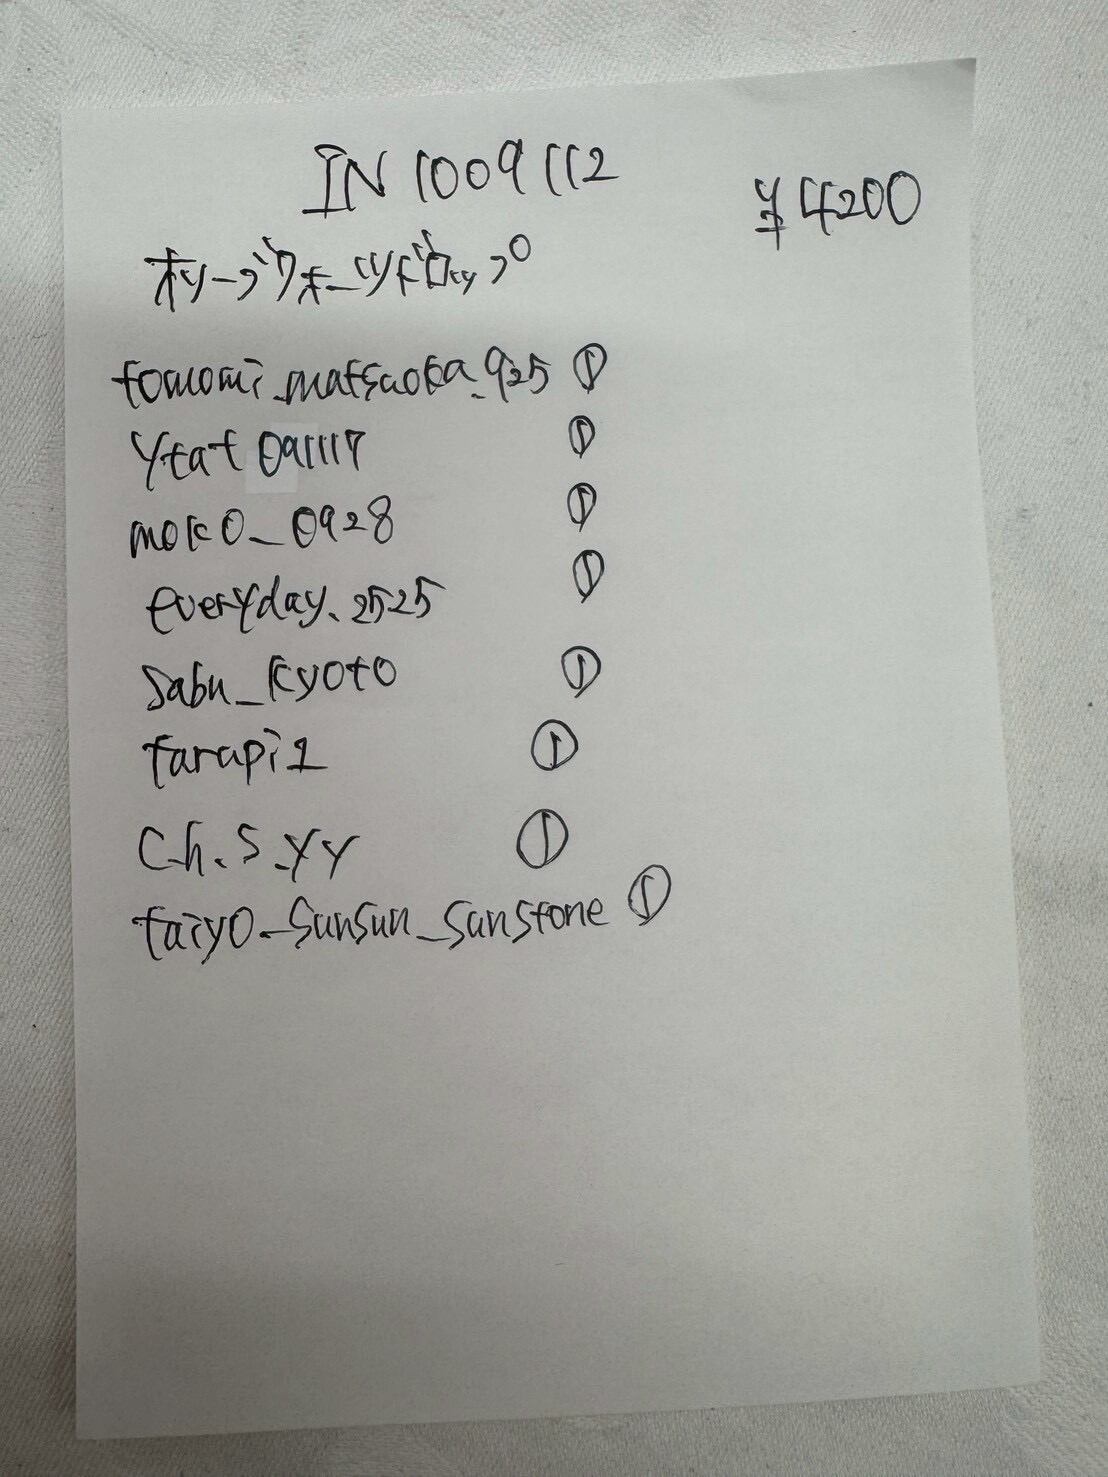 IN1009112
¥4200
オリーブクォーツドロップ
tomomi_matsuoka_925 ①
ytat091117 ①
moko_0928 ①
everyday.2525 ①
sabu_kyoto ①
tarapi1 ①
c.h.s.yy ①
taiyo_sunsun_sunstone ①